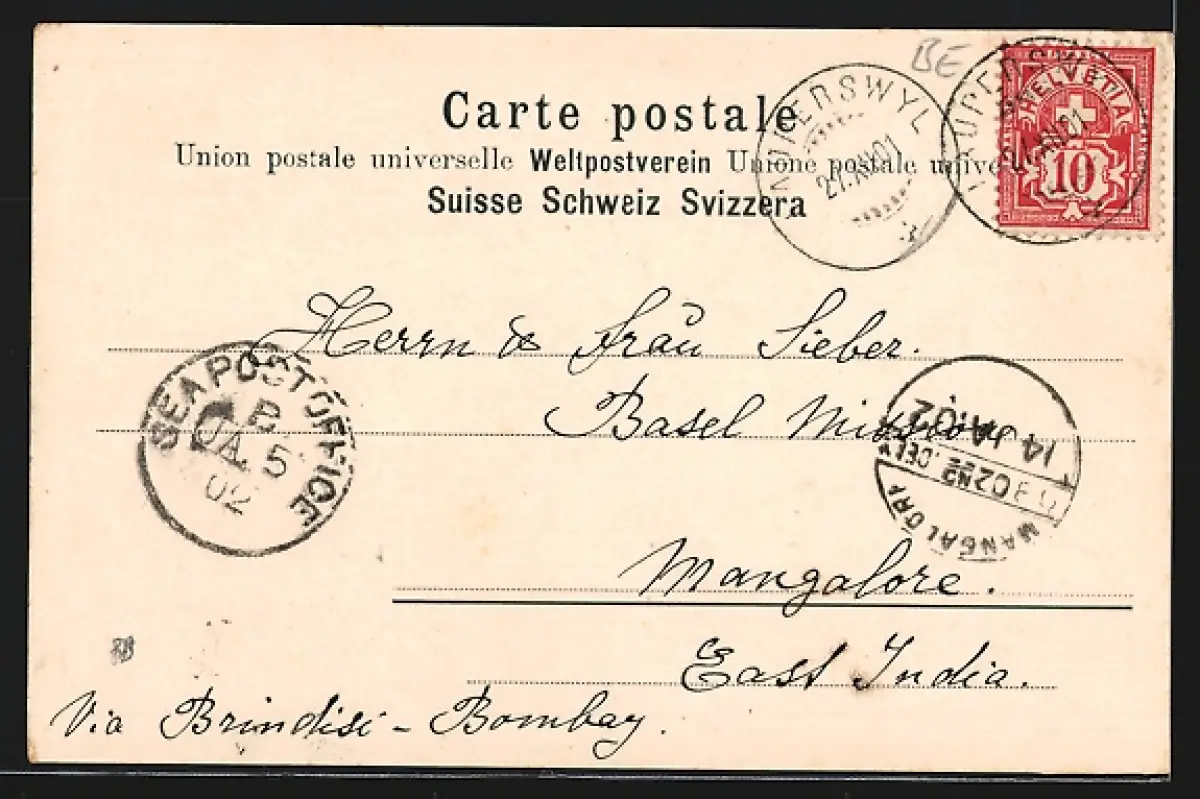 BE
Carte postale
Union postale universelle Weltpostverein Unione postale unive
Suisse Schweiz Svizzera
LAUPERSWYL
HELVETIA
10
Herrn & Frau Sieber.
Basel Mission
Mangalore.
East India.
Via Brindisi - Bombay.
SEA POST OFFICE
B
JA. 5
02
14 JA. 02
MANGALORE